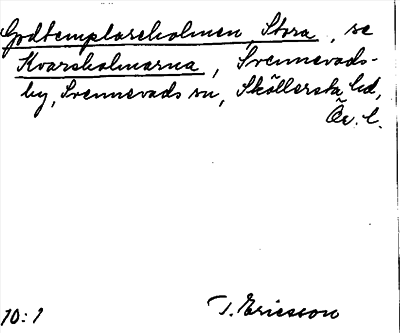 Godtemplareholmen, Stora, se
Kvarsholmarna, Svennevads-
by, Svennevads sn, Sköllersta hd,
Ör. l.
10:1 T. Ericsson